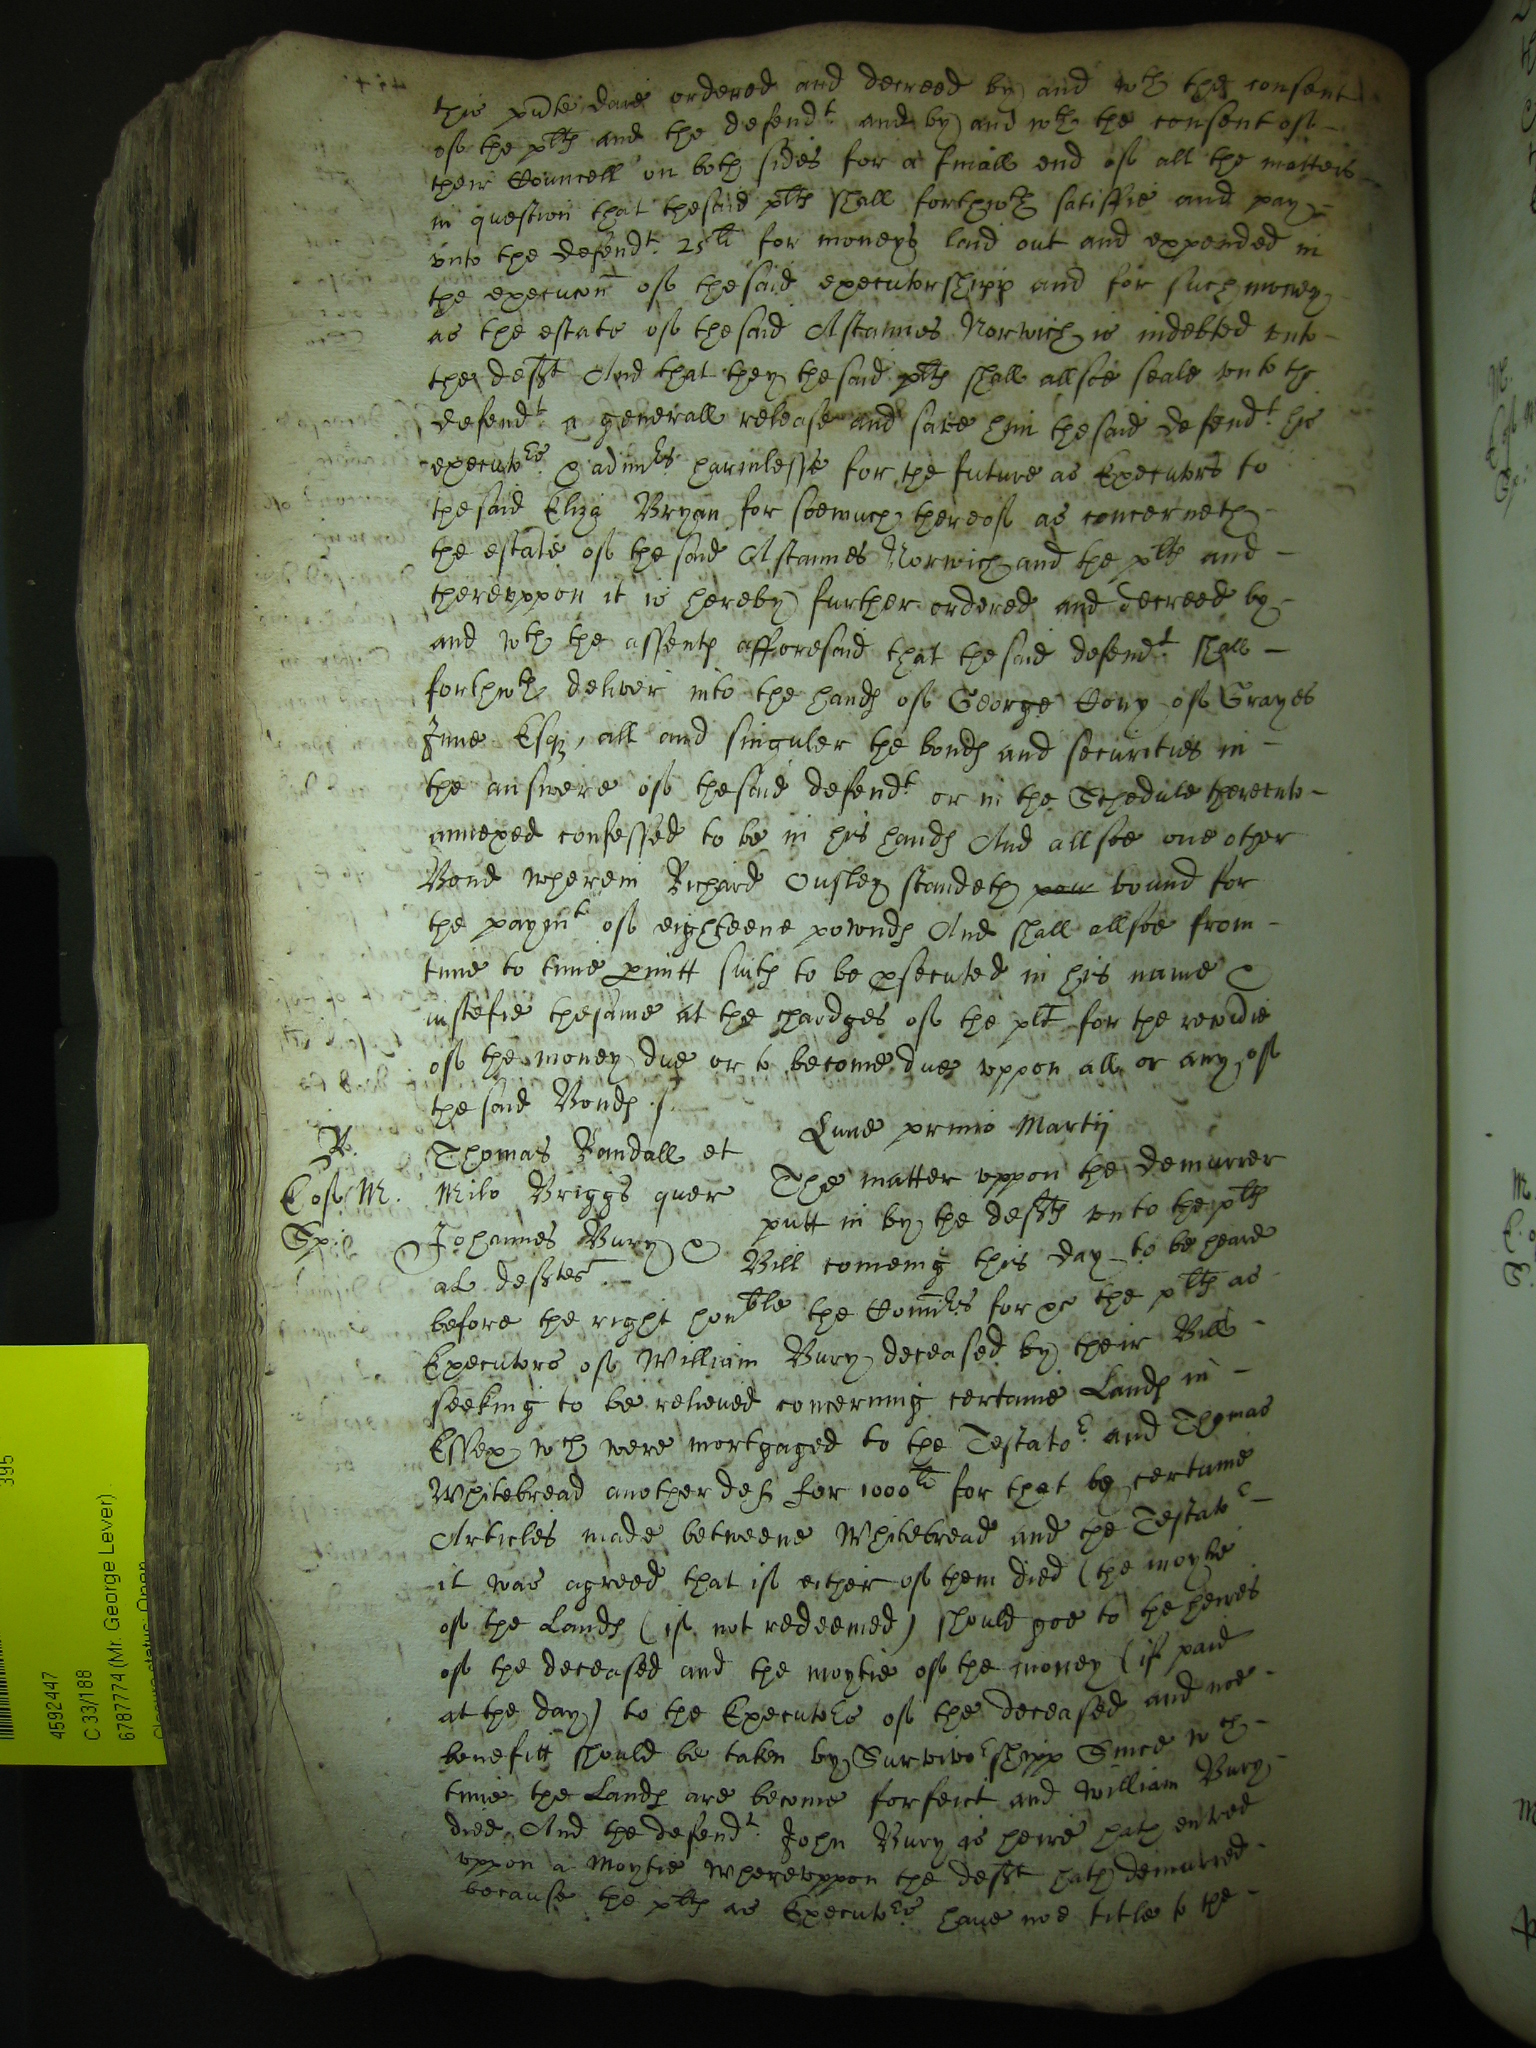 this pñte daie ordered and decreed by and wth the consent
of the plts and the defendt and by and wth the consent of
their Councell on both sides for a finall end of all the matters
in question that the said plts shall forthwth satisfie and pay
vnto the defendt 25li for moneys laid out and expended in
the execucon of the said executorshipp and for such money
as the estate of the said Norwich is indebted vnto
the deft And that they the said plts shall allsoe seale vnto the
defendt a generall release and save him the said defendt his
executors & admrs harmlesse for the future as Executors to
the said Eliza Bryan for soemuch thereof as concerneth
the estate of the said Norwich and the plts and
therevppon it is hereby further ordered and decreed by
and wth the assents afforesaid that the said defendt shall
forthwth deliver into the hands of George Cony of Grayes
Inne Esqr, all and singuler the bonds and securities in
the answere of the said defendt or in the Schedule therevnto
annexed confessed to be in his hands And allsoe one other
Bond wherein Richard Ousley standeth bound for
the paymt of eighteene pownds And shall allsoe from
time to time pmitt suits to be psecuted in his name &
iustefie the same at the chardges of the plt for the
of the money due or to become due vppon all or any of
the said Bonds
Lune primo Martij
R.
Thomas Randall et
Milo Briggs quer
Johannes Bury &
al deftes
The matter vppon the demurrer
putt in by the defts vnto the plts
Bill comeing this day to be heard
before the right honble the Comrs for yt the plts as
Executors of William Bury deceased by their Bill
seeking to be relieued concerning certaine Lands in
Essex wch were mortgaged to the Testator and Thomas
Whitebread another def for 1000li for that by certaine
Articles made betweene Whitebread and the Testator
it was agreed that if either of them died (the moytie
of the Lands (if not redeemed) should goe to the heires
of the deceased and the moytie of the money (if paid
at the day) to the Executors of the deceased and noe
benefitt should be taken by Survivorshipp Since wch
time the Lands are become forfeict and William Bury
died And the defendt John Bury as heire hath entred
vppon a Moytie wherevppon the deft hath demurred
because the plts as Executors haue noe title to the
395
4592447
C 33/188
6787774 (Mr. George Lever)
Closure status: Open